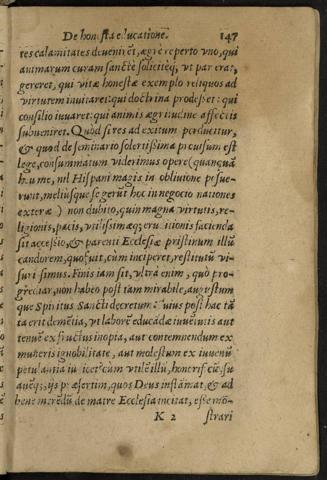 De honesta educatione. 147
tes calamitates devenirēt, ægrè reperto uno, qui
animarum curam sanctè soliciteq́; ut par erat,
gereret, qui vitæ honestæ exemplo reliquos ad
virtutem invitaret: qui doctrina prodesset: qui
consilio iuvaret: qui animis ægritudine affectis
subveniret. Quòd si res ad exitum perducitur,
& quod de seminario solertissimè præcisum est
lege, consummatum viderimus opere (quanquā
hûme, nil Hispani magis in oblivione posue-
runt, meliusque se gerūt hoc in negocio nationes
exteræ) non dubito, quin magna virtutis, re-
ligionis, pacis, utilissimæq; eruditionis facienda
sit accessio, & parenti Ecclesiæ pristinum illū
candorem, quo fuit, cum inciperet, restitutū vi-
suri simus. Finis iam sit, ultra enim, quò pro-
grediar, non habeo post tam mirabile, augustum
que Spiritus Sancti decretum: cuius post hac tā
ta erit demētia, ut laborē educādæ iuvētutis aut
tenuē ex fructus inopia, aut contemnendum ex
muneris ignobilitate, aut molestum ex iuvenū
petulantia iudicet: cùm utilē illū, honorificū, su
avēq;, iis præsertim, quos Deus instāmat, & ad
bene merēdū de matre Ecclesia incitat, esse mō-
K 2 strari